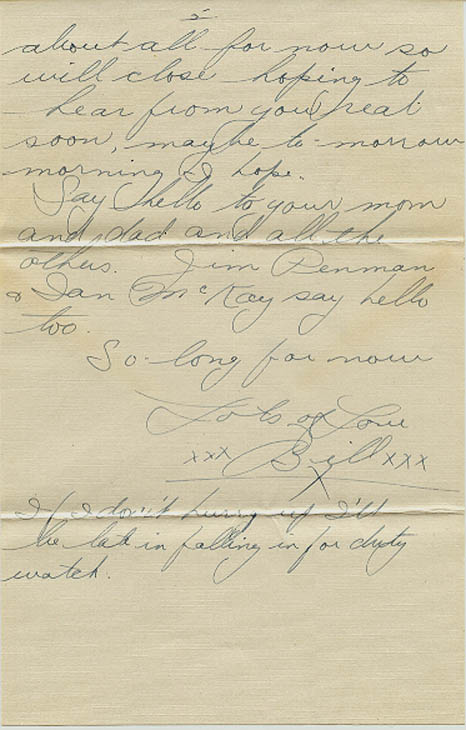 5
about all for now so
will close hoping to
hear from you real
soon, maybe to-morrow
morning I hope.
Say hello to your mom
and dad and all the
others. Jim Penman
& Ian McKay say hello
too.
So-long for now
Lots of Love
xxx Bill xxx
If I don't hurry up I'll
be late in falling in for duty
watch.